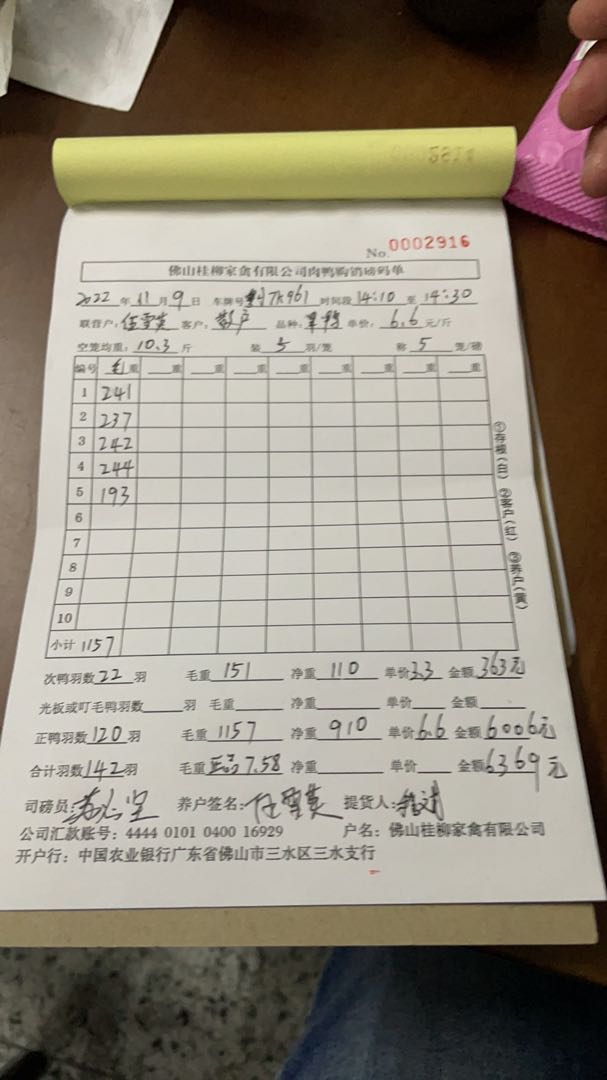 No. 0002916
佛山桂柳家禽有限公司肉鸭购销磅码单
2022年11月9日 车牌号 7K961 时间段14:10至14:30
联营户: 任雪英 客户: 散户 品种: 单价: 6.6元/斤
空笼均重: 10.3斤 装5羽/笼 称5笼/磅
编号 毛重 重 重 重 重 重 重 重
1 241
2 237
3 242
4 244
5 193
6
7
8
9
10
小计 1157
①存根(白) ②客户(红) ③养户(黄)
次鸭羽数22羽 毛重151 净重110 单价3.3 金额363元
光板或叮毛鸭羽数 羽 毛重 净重 单价 金额
正鸭羽数120羽 毛重1157 净重910 单价6.6 金额6006元
合计羽数142羽 毛重 7.58 净重 单价 金额6369元
司磅员: 养户签名: 任雪英 提货人:
公司汇款账号: 4444 0101 0400 16929 户名: 佛山桂柳家禽有限公司
开户行: 中国农业银行广东省佛山市三水区三水支行